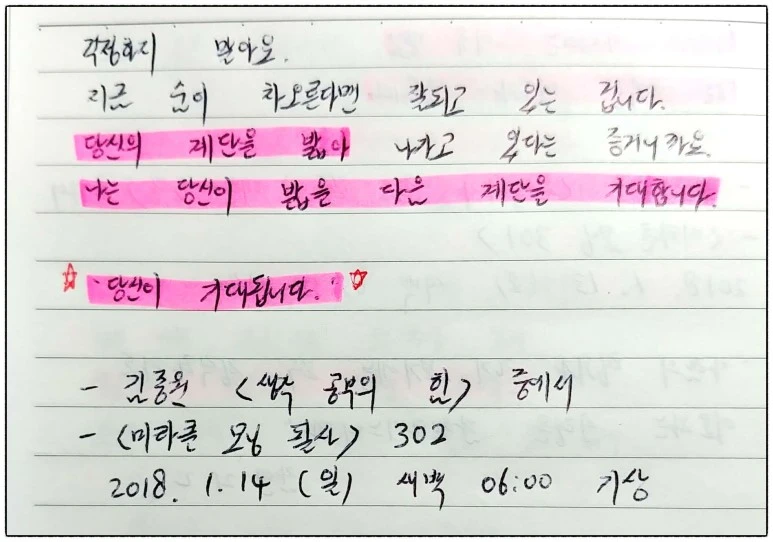 걱정하지 말아요.
지금 숨이 차오른다면 잘되고 있는 겁니다.
당신의 계단을 밟아 나가고 있다는 증거니까요.
나는 당신이 밟을 다음 계단을 기대합니다.
☆ 당신이 기대됩니다. ♡
- 김종원 <생각 공부의 힘> 중에서
- <미라클 모닝 필사> 302
2018. 1. 14 (일) 새벽 06:00 기상